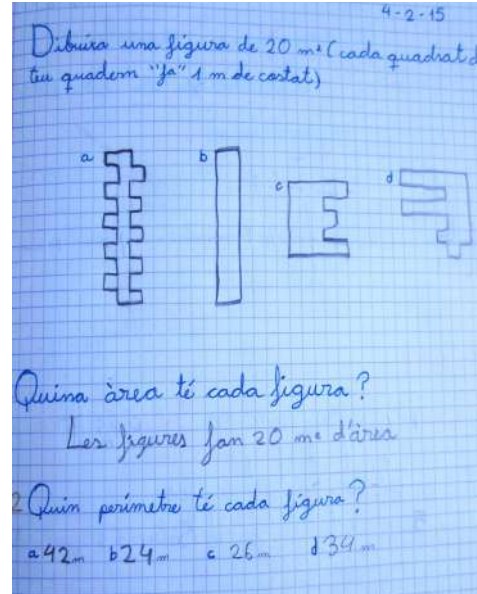 4-2-15
Dibuixa una figura de 20 m² (cada quadrat d
teu quadern "fa" 1 m de costat)
a b c d
Quina àrea té cada figura?
Les figures fan 20 m² d'àrea
2 Quin perímetre té cada figura?
a 42 m b 24 m c 26 m d 34 m